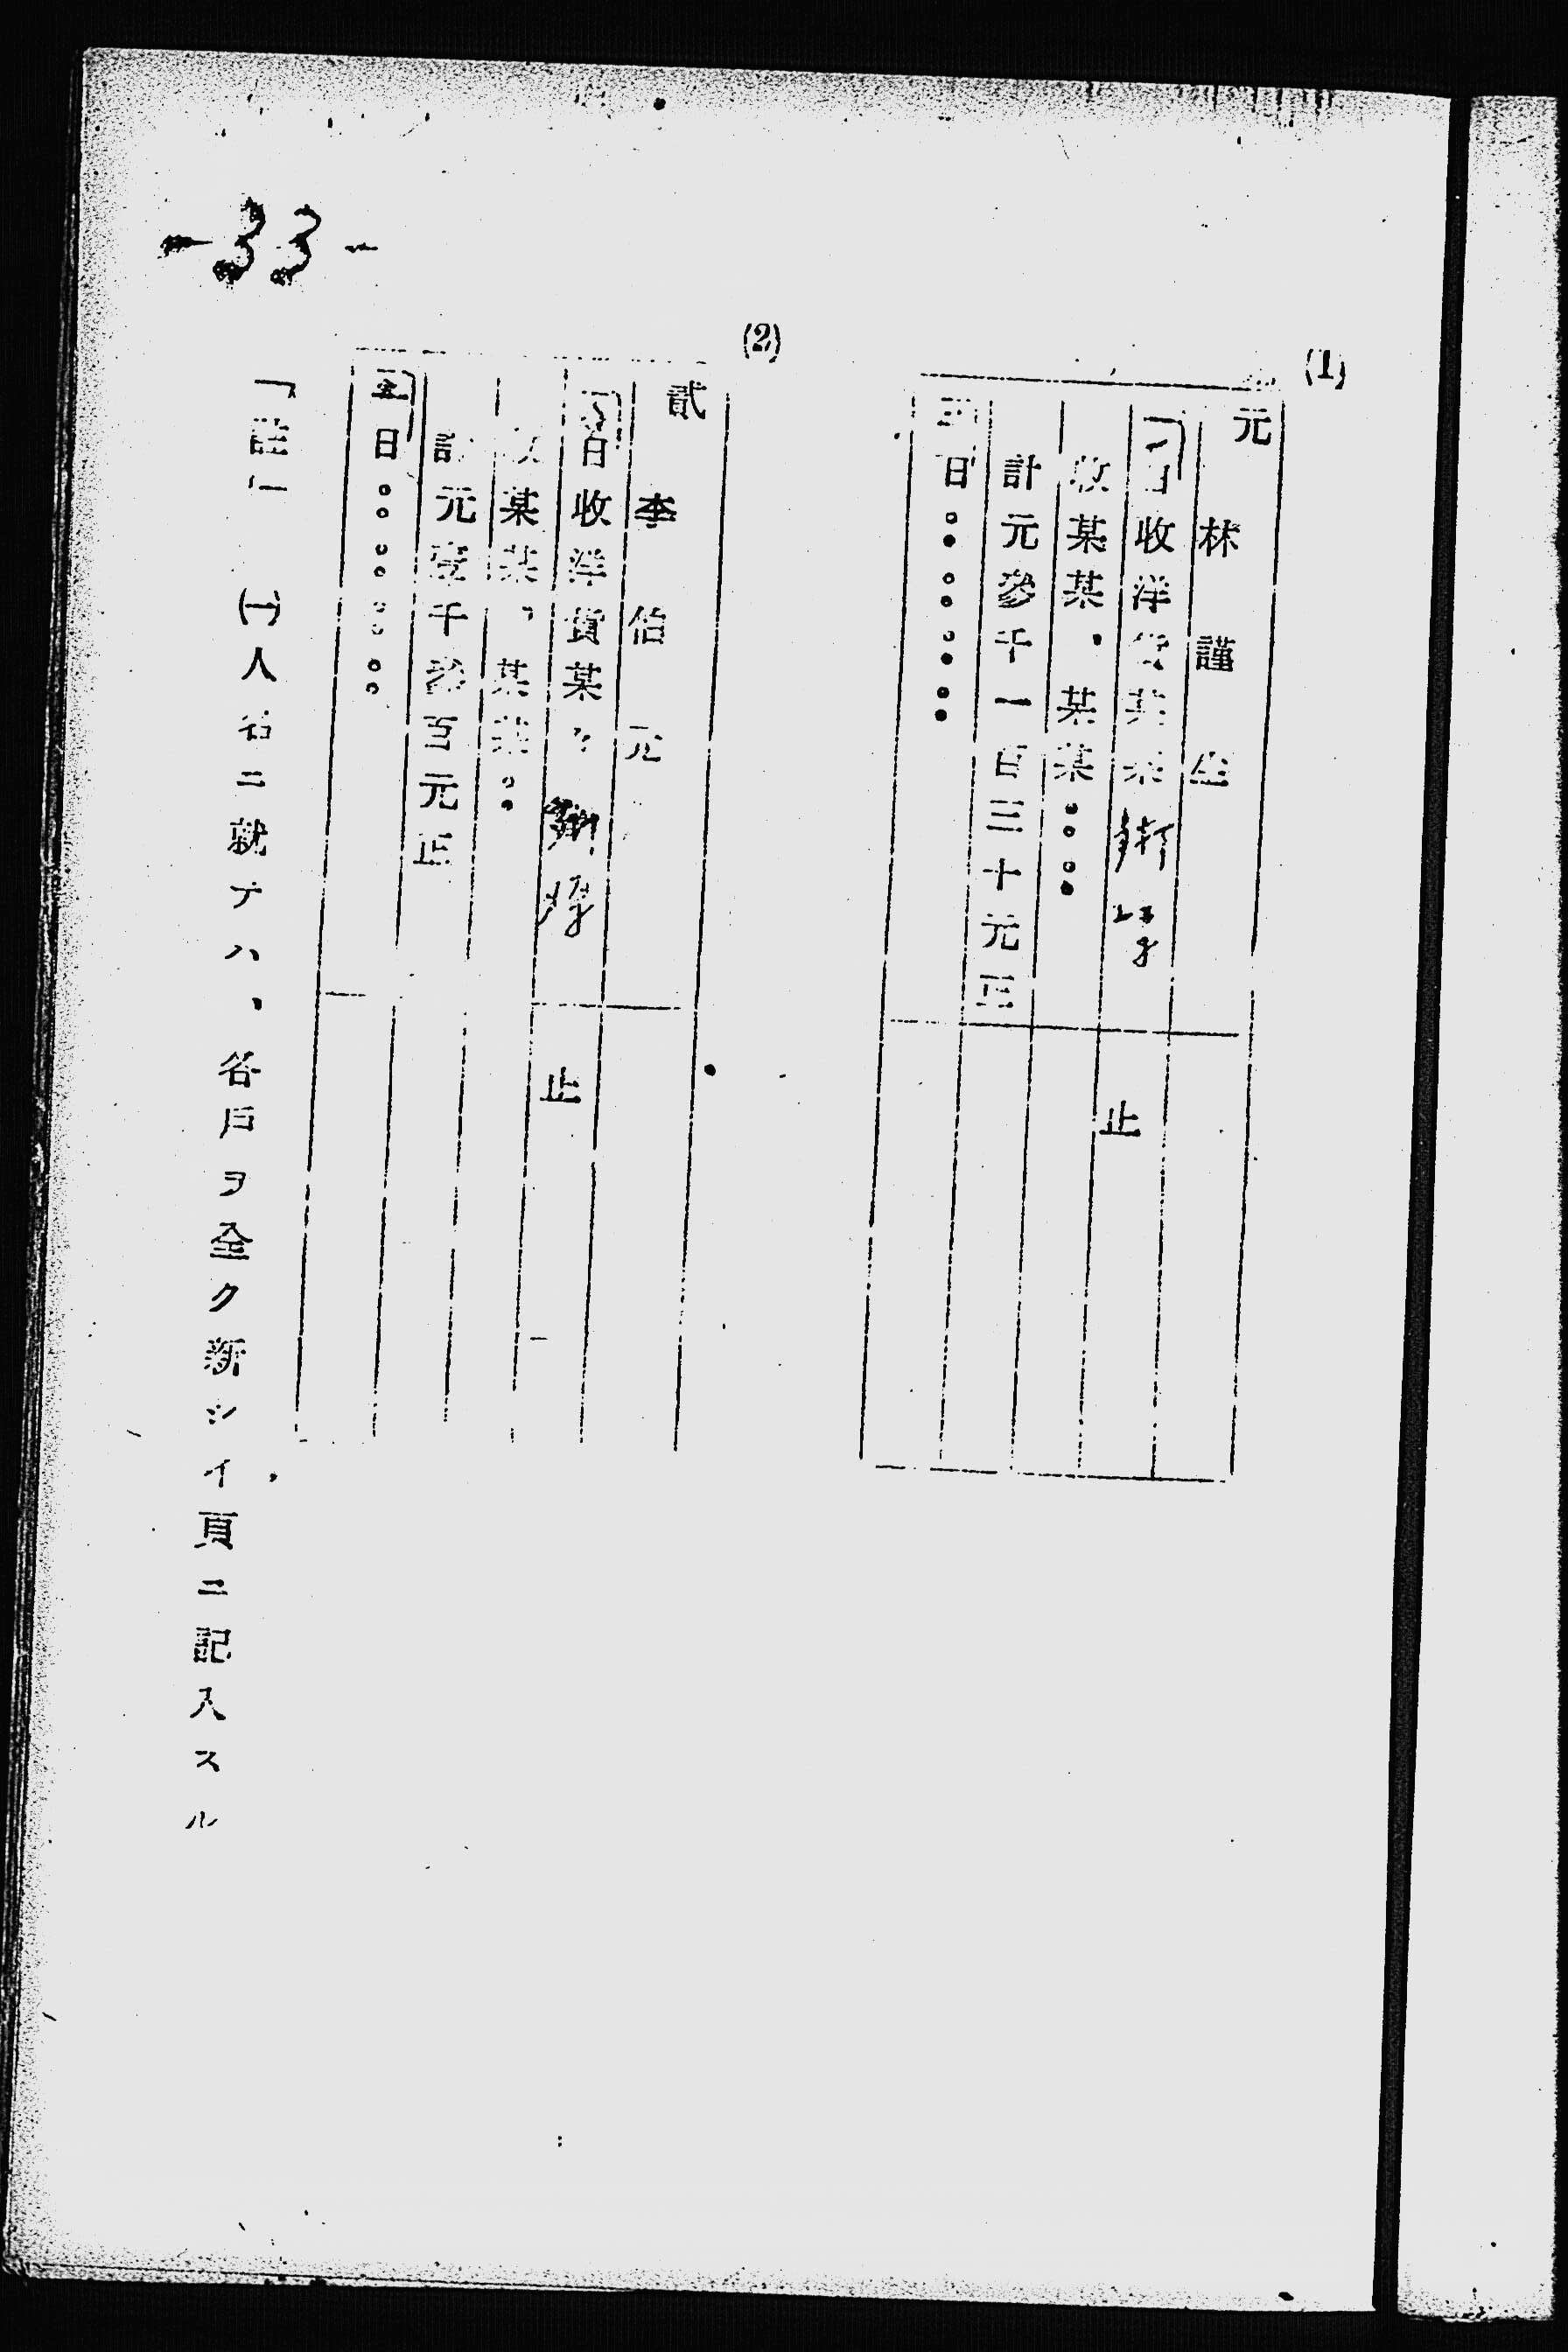 -33-
(1)
元
林謹
日收洋
收某某、某某
計元參千一百三十元正
日
止
(2)
貳
李伯元
日收洋貨某々
某某、某某
計元壹千參百元正
日
止
「註」 ㈠人名ニ就テハ、各戶ヲ全ク新シイ頁ニ記入スル